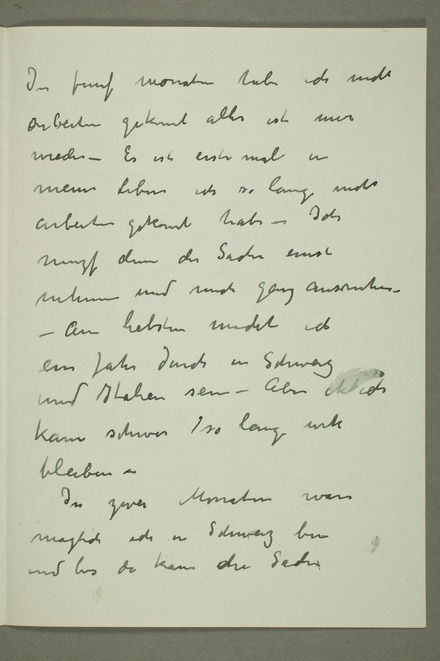 In funf monaten habe ich nicht
arbeiten gekonnt alles ist mir
wieder – Es ist erste mal in
meine Leben ich so lange nicht
arbeiten gekonnt habe – Ich
die Sache ernst
nehmen und mich ganz ausruhen –
– Am liebsten mocht ich
ein Jahr durch in Schweiz
und Italien sein – Aber ich
kann schwer so lange
bleiben –
In zwei Monaten war
moglich ich in Schweiz bin
und bis da kann die Sache